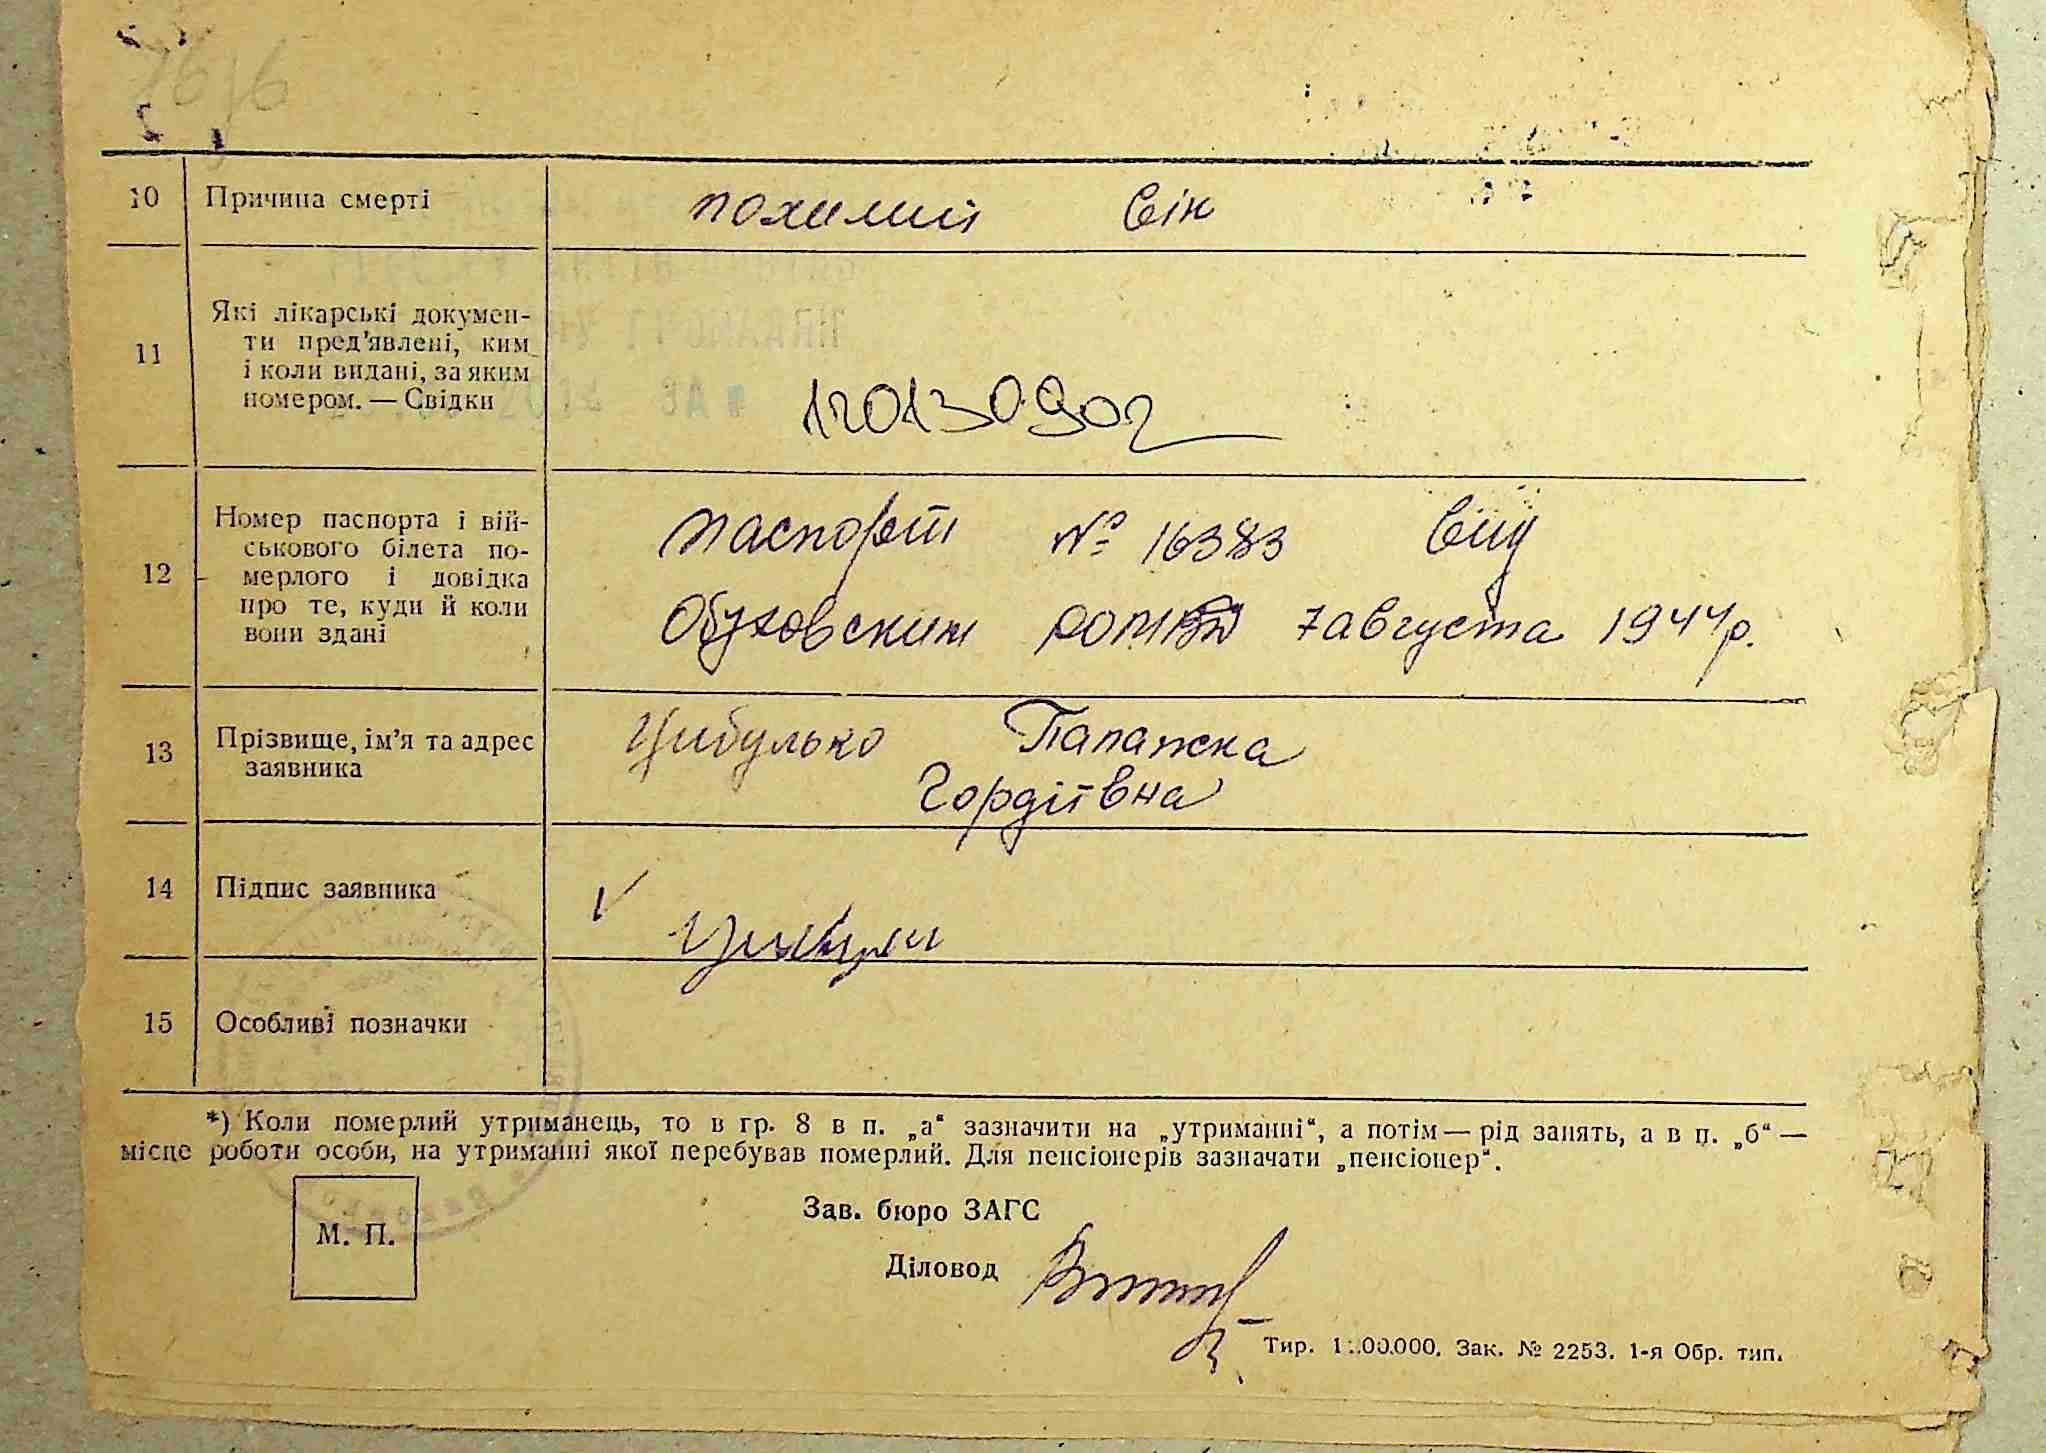 10 Причина смерті похилий вік
11 Які лікарські докумен-
ти пред'явлені, ким
і коли видані, за яким
номером. — Свідки
120130902
12 Номер паспорта і вій-
ськового білета по-
мерлого і довідка
про те, куди й коли
вони здані
паспорт № 16383 вид
Обуховским 7 августа 1944 р.
13 Прізвище, ім'я та адрес
заявника
Цибулько Палажка
Гордіївна
14 Підпис заявника
15 Особливі позначки
*) Коли померлий утриманець, то в гр. 8 в п. „а“ зазначити на „утриманні“, а потім — рід занять, а в п. „б“ —
місце роботи особи, на утриманні якої перебував померлий. Для пенсіонерів зазначати „пенсіонер“.
М. П.
Зав. бюро ЗАГС
Діловод
Тир. Зак. № 2253. 1-я Обр. тип.